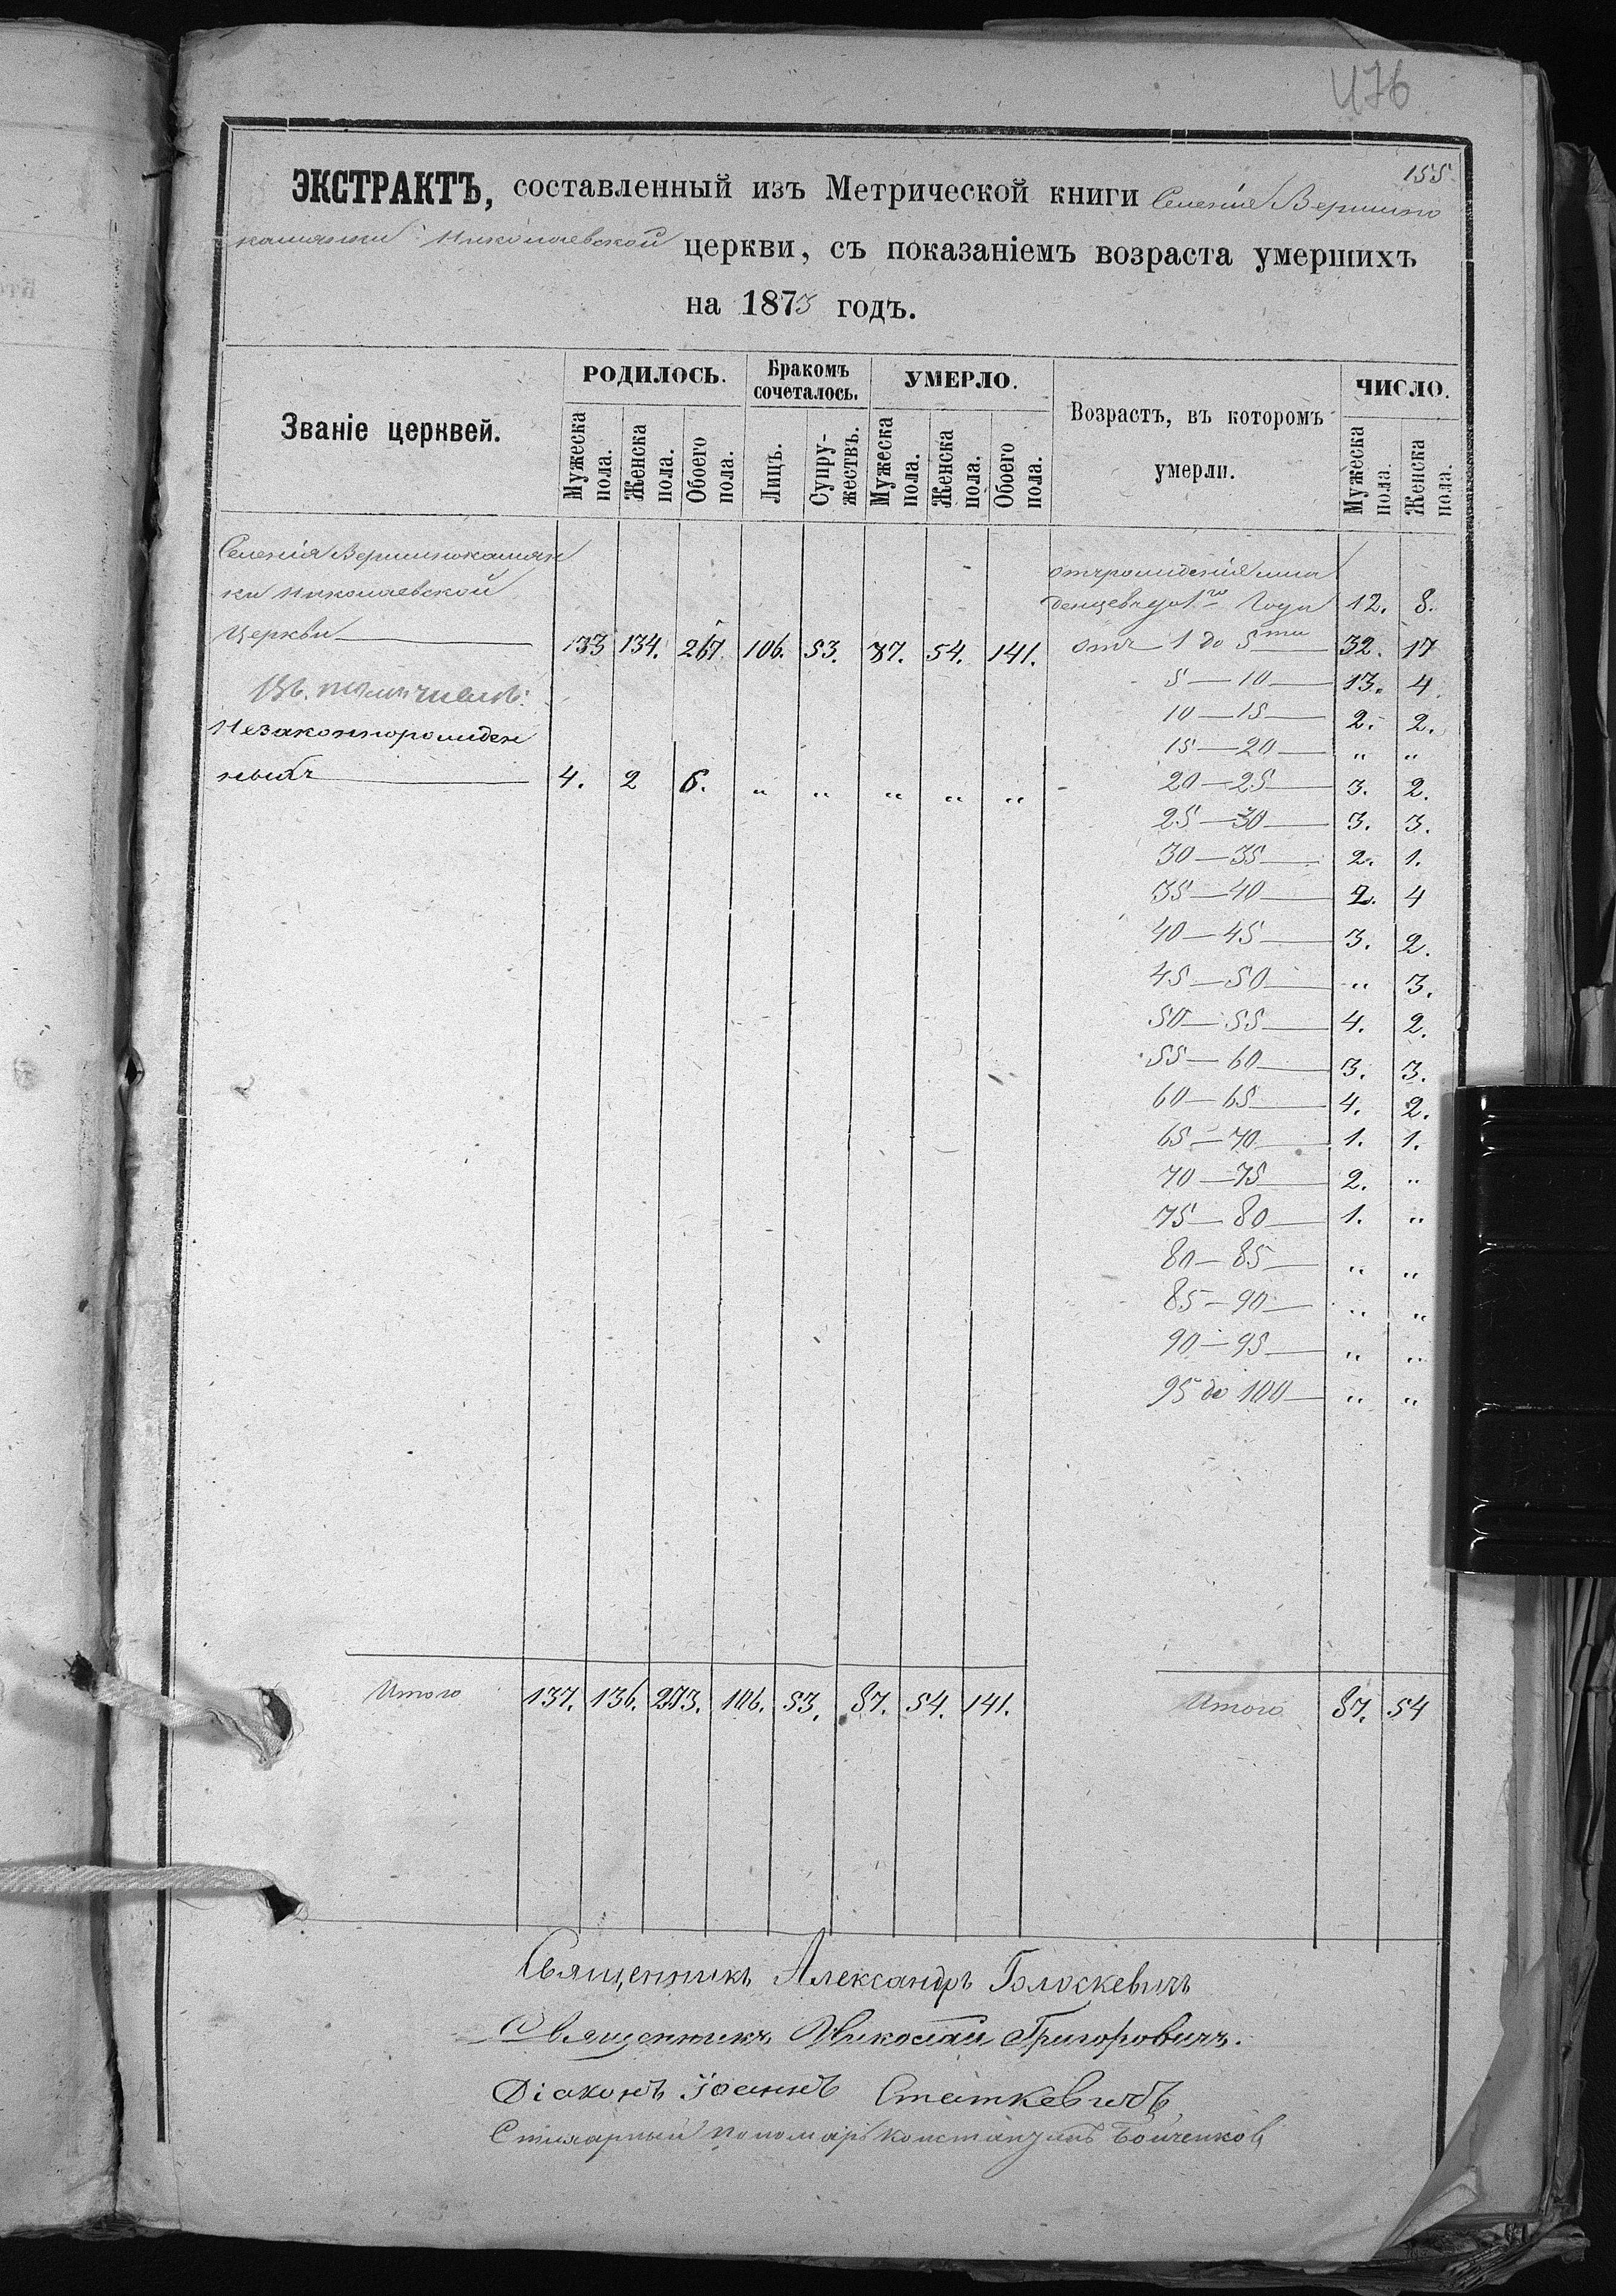 476
155.
ЭКСТРАКТЪ, составленный изъ Метрической книги Селенія Вершино
каменки Николаевской церкви, съ показаніемъ возраста умершихъ
на 1873 годъ.
Званіе церквей.
РОДИЛОСЬ.
Мужеска пола.
Женска пола.
Обоего пола.
Бракомъ сочеталось.
Лицъ.
Супру-жествъ.
УМЕРЛО.
Мужеска пола.
Женска пола.
Обоего пола.
Возрастъ, въ которомъ
умерли.
ЧИСЛО.
Мужеска пола.
Женска пола.
Селенія Вершинокамян
ки Николаевской
Церкви 133 134. 267. 106. 53. 87. 54. 141.
Въ томъ числѣ:
Незаконнорожден
ныхъ 4. 2 6. „ „ „ „ „
отъ рожденія мла
денцевъ до 1го Года 12. 8.
отъ 1 до 5ти 32. 17
5 — 10 13. 4.
10 — 15 2. 2.
15 — 20 „ „
20 — 25 3. 2.
25 — 30 3. 3.
30 — 35 2. 1.
35 — 40 2. 4
40 — 45 3. 2.
45 — 50 „ 3.
50 — 55 4. 2.
55 — 60 3. 3.
60 — 65 4. 2.
65 — 70 1. 1.
70 — 75 2. „
75 — 80 1. „
80 — 85 „ „
85 — 90 „ „
90 — 95 „ „
95 до 100 „ „
Итого 137. 136. 273. 106. 53. 87. 54. 141. Итого 87. 54
Священникъ Александръ Голоскевичъ
Священникъ Николай Григоровичъ.
Діаконъ Іоаннъ Статкевичъ
Стихарный пономарь Константинъ Бойченковъ